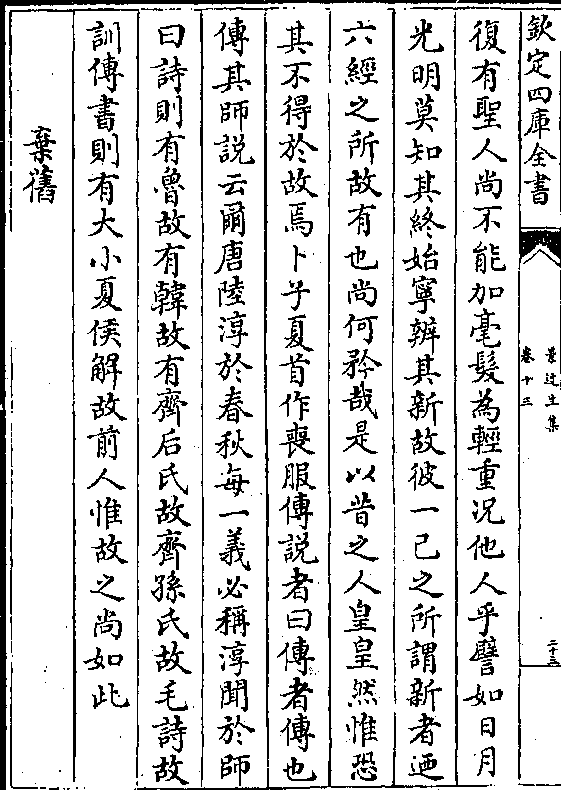 欽定四庫全書
景迂生集
卷十三
二十三
復有聖人尚不能加毫髮為輕重况他人乎譬如日月
光明莫知其終始寧辨其新故彼一己之所謂新者迺
六經之所故有也尚何矜哉是以昔之人皇皇然惟恐
其不得於故焉卜子夏首作喪服傳説者曰傳者傳也
傳其師説云爾唐陸淳於春秋每一義必稱淳聞於師
曰詩則有魯故有韓故有齊后氏故齊孫氏故毛詩故
訓傳書則有大小夏侯解故前人惟故之尚如此
棄舊